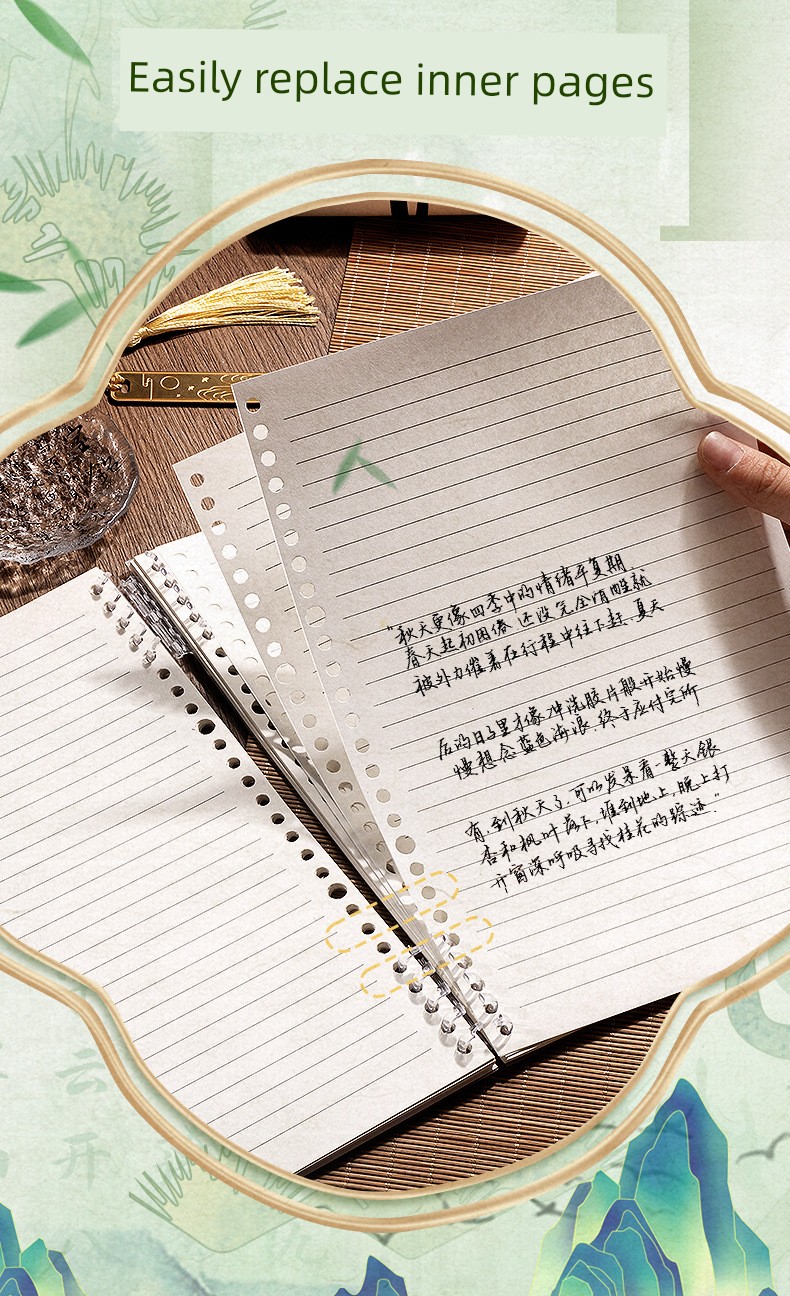 Easily replace inner pages
"秋天更像四季中的情绪平复期.
春天起初困倦.还没完全清醒就
被外力催着在行程中往下赶.夏天
后的日子里才像冲洗胶片般开始慢
慢想念蓝色海浪.终于应付完所
有.到秋天了.可以发呆看一整天银
杏和枫叶落下,堆到地上.晚上打
开窗深呼吸寻找桂花的踪迹."
云
开